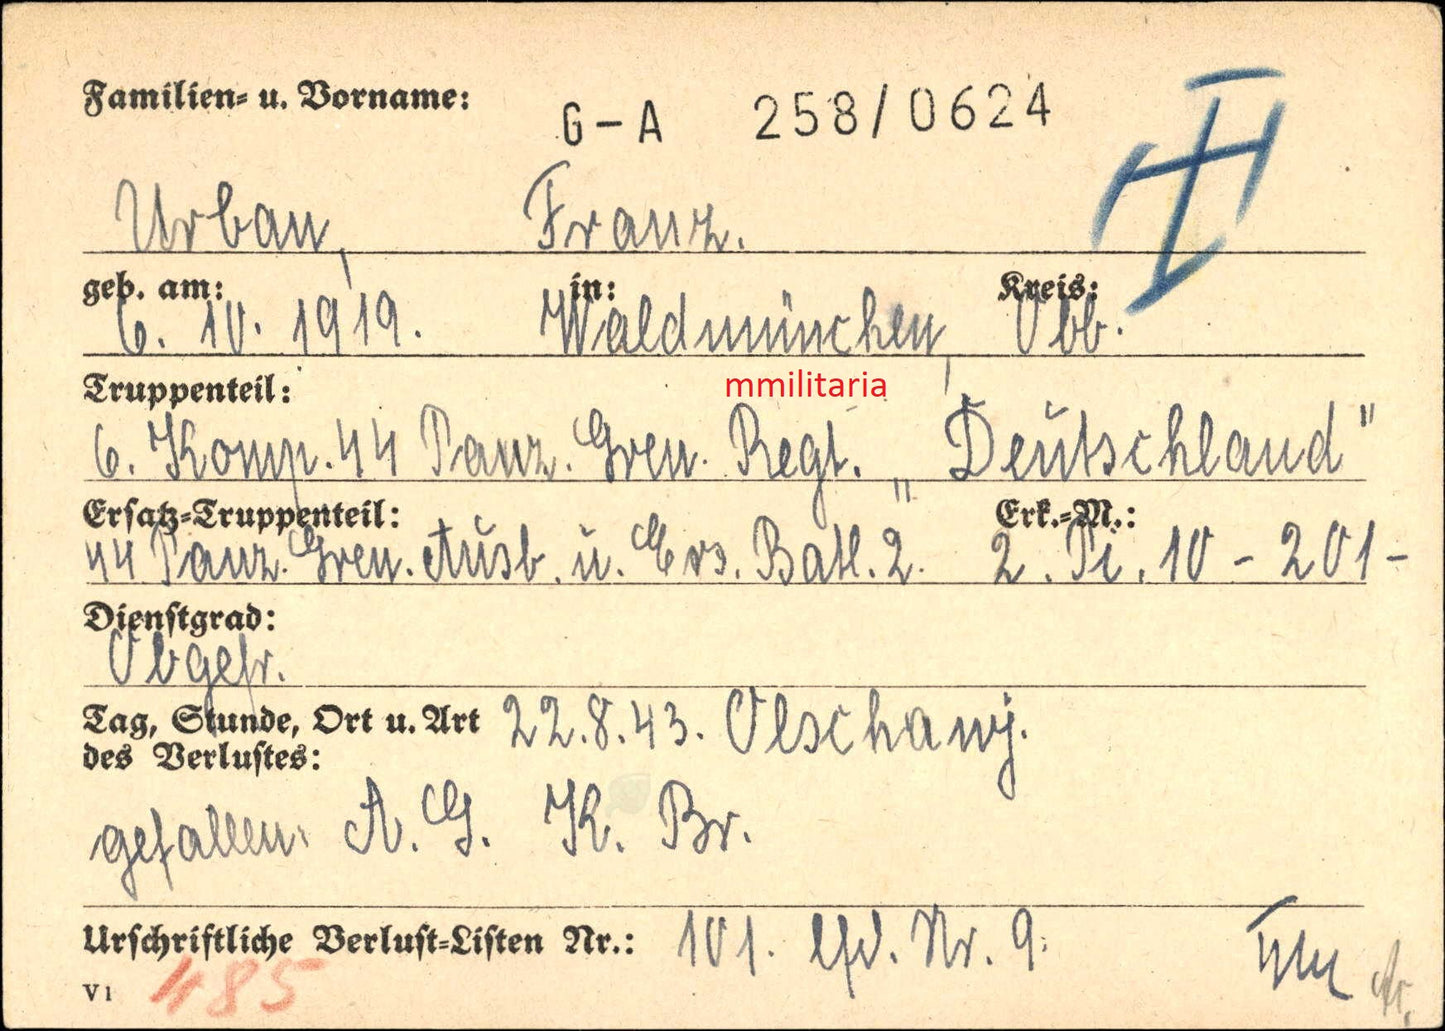 Familien- u. Vorname:
G-A 258/0624
Urban, Franz.
geb. am: in: Kreis:
6. 10. 1919. Waldmünchen, Obb.
Truppenteil:
mmilitaria
6. Komp. 44 Panz. Gren. Regt. „Deutschland"
Ersatz-Truppenteil: Erk.-M.:
44 Panz. Gren. Ausb. u. Ers. Batl. 2. 2. Pi. 10 - 201 -
Dienstgrad:
Obgefr.
Tag, Stunde, Ort u. Art 22.8.43. Olschanj.
des Verlustes:
gefallen. A. G. K. Br.
Urschriftliche Verlust-Listen Nr.: 101. lfd. Nr. 9.
V 1 485